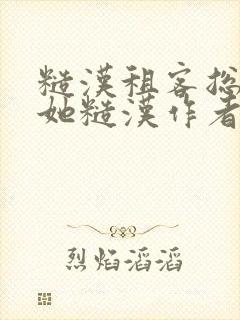 糙汉租客总
她糙汉作者
烈焰滔滔